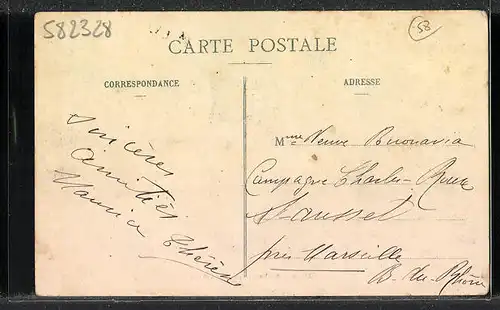 582328
58
CARTE POSTALE
CORRESPONDANCE
ADRESSE
Sincères
amitiés
Mme Veuve Buonavia
Campagne Charles-Roux
Sausset
près Marseille
B. du-Rhône